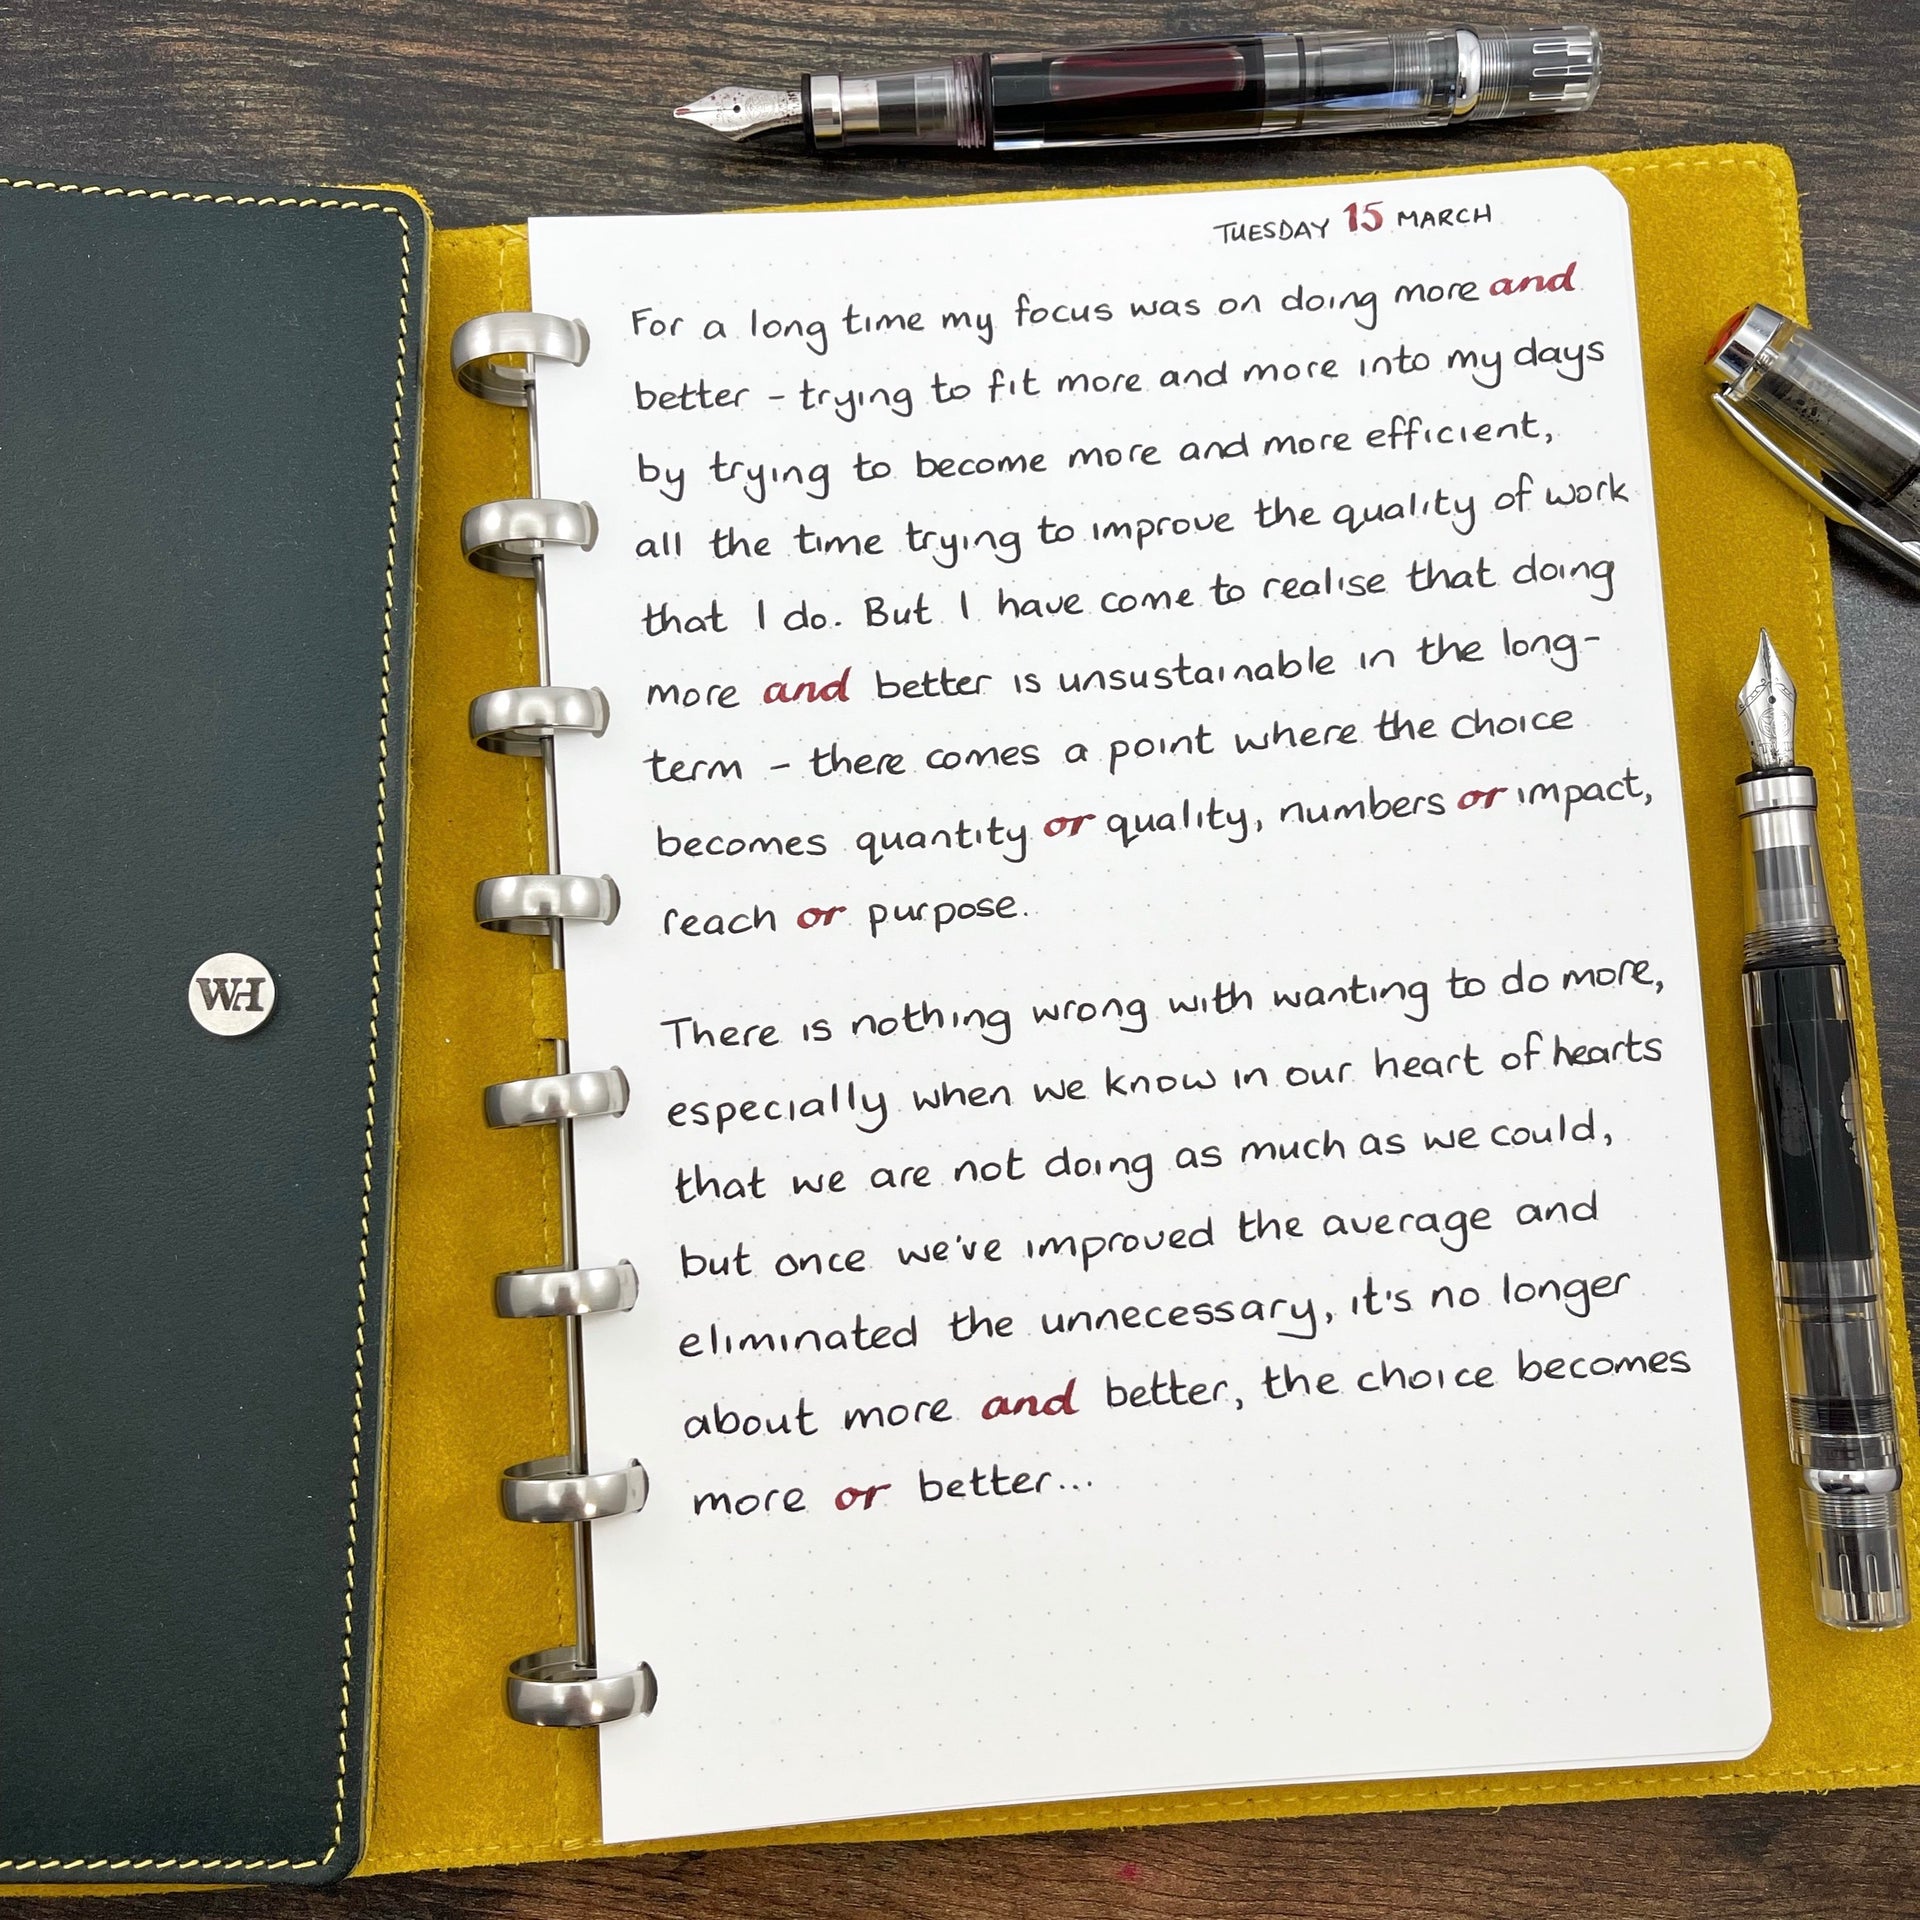 TUESDAY 15 MARCH
For a long time my focus was on doing more and
better - trying to fit more and more into my days
by trying to become more and more efficient,
all the time trying to improve the quality of work
that I do. But I have come to realise that doing
more and better is unsustainable in the long-
term - there comes a point where the choice
becomes quantity or quality, numbers or impact,
reach or purpose.
There is nothing wrong with wanting to do more,
especially when we know in our heart of hearts
that we are not doing as much as we could,
but once we've improved the average and
eliminated the unnecessary, it's no longer
about more and better, the choice becomes
more or better...
WH